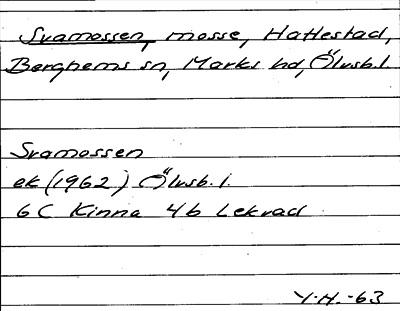 Svamossen, mosse, Hattestad,
Berghems sn, Marks hd, Älvsb. l.
Svamossen
ek (1962) Älvsb. l.
6 C Kinna 4b Lekvad
Y.H. -63